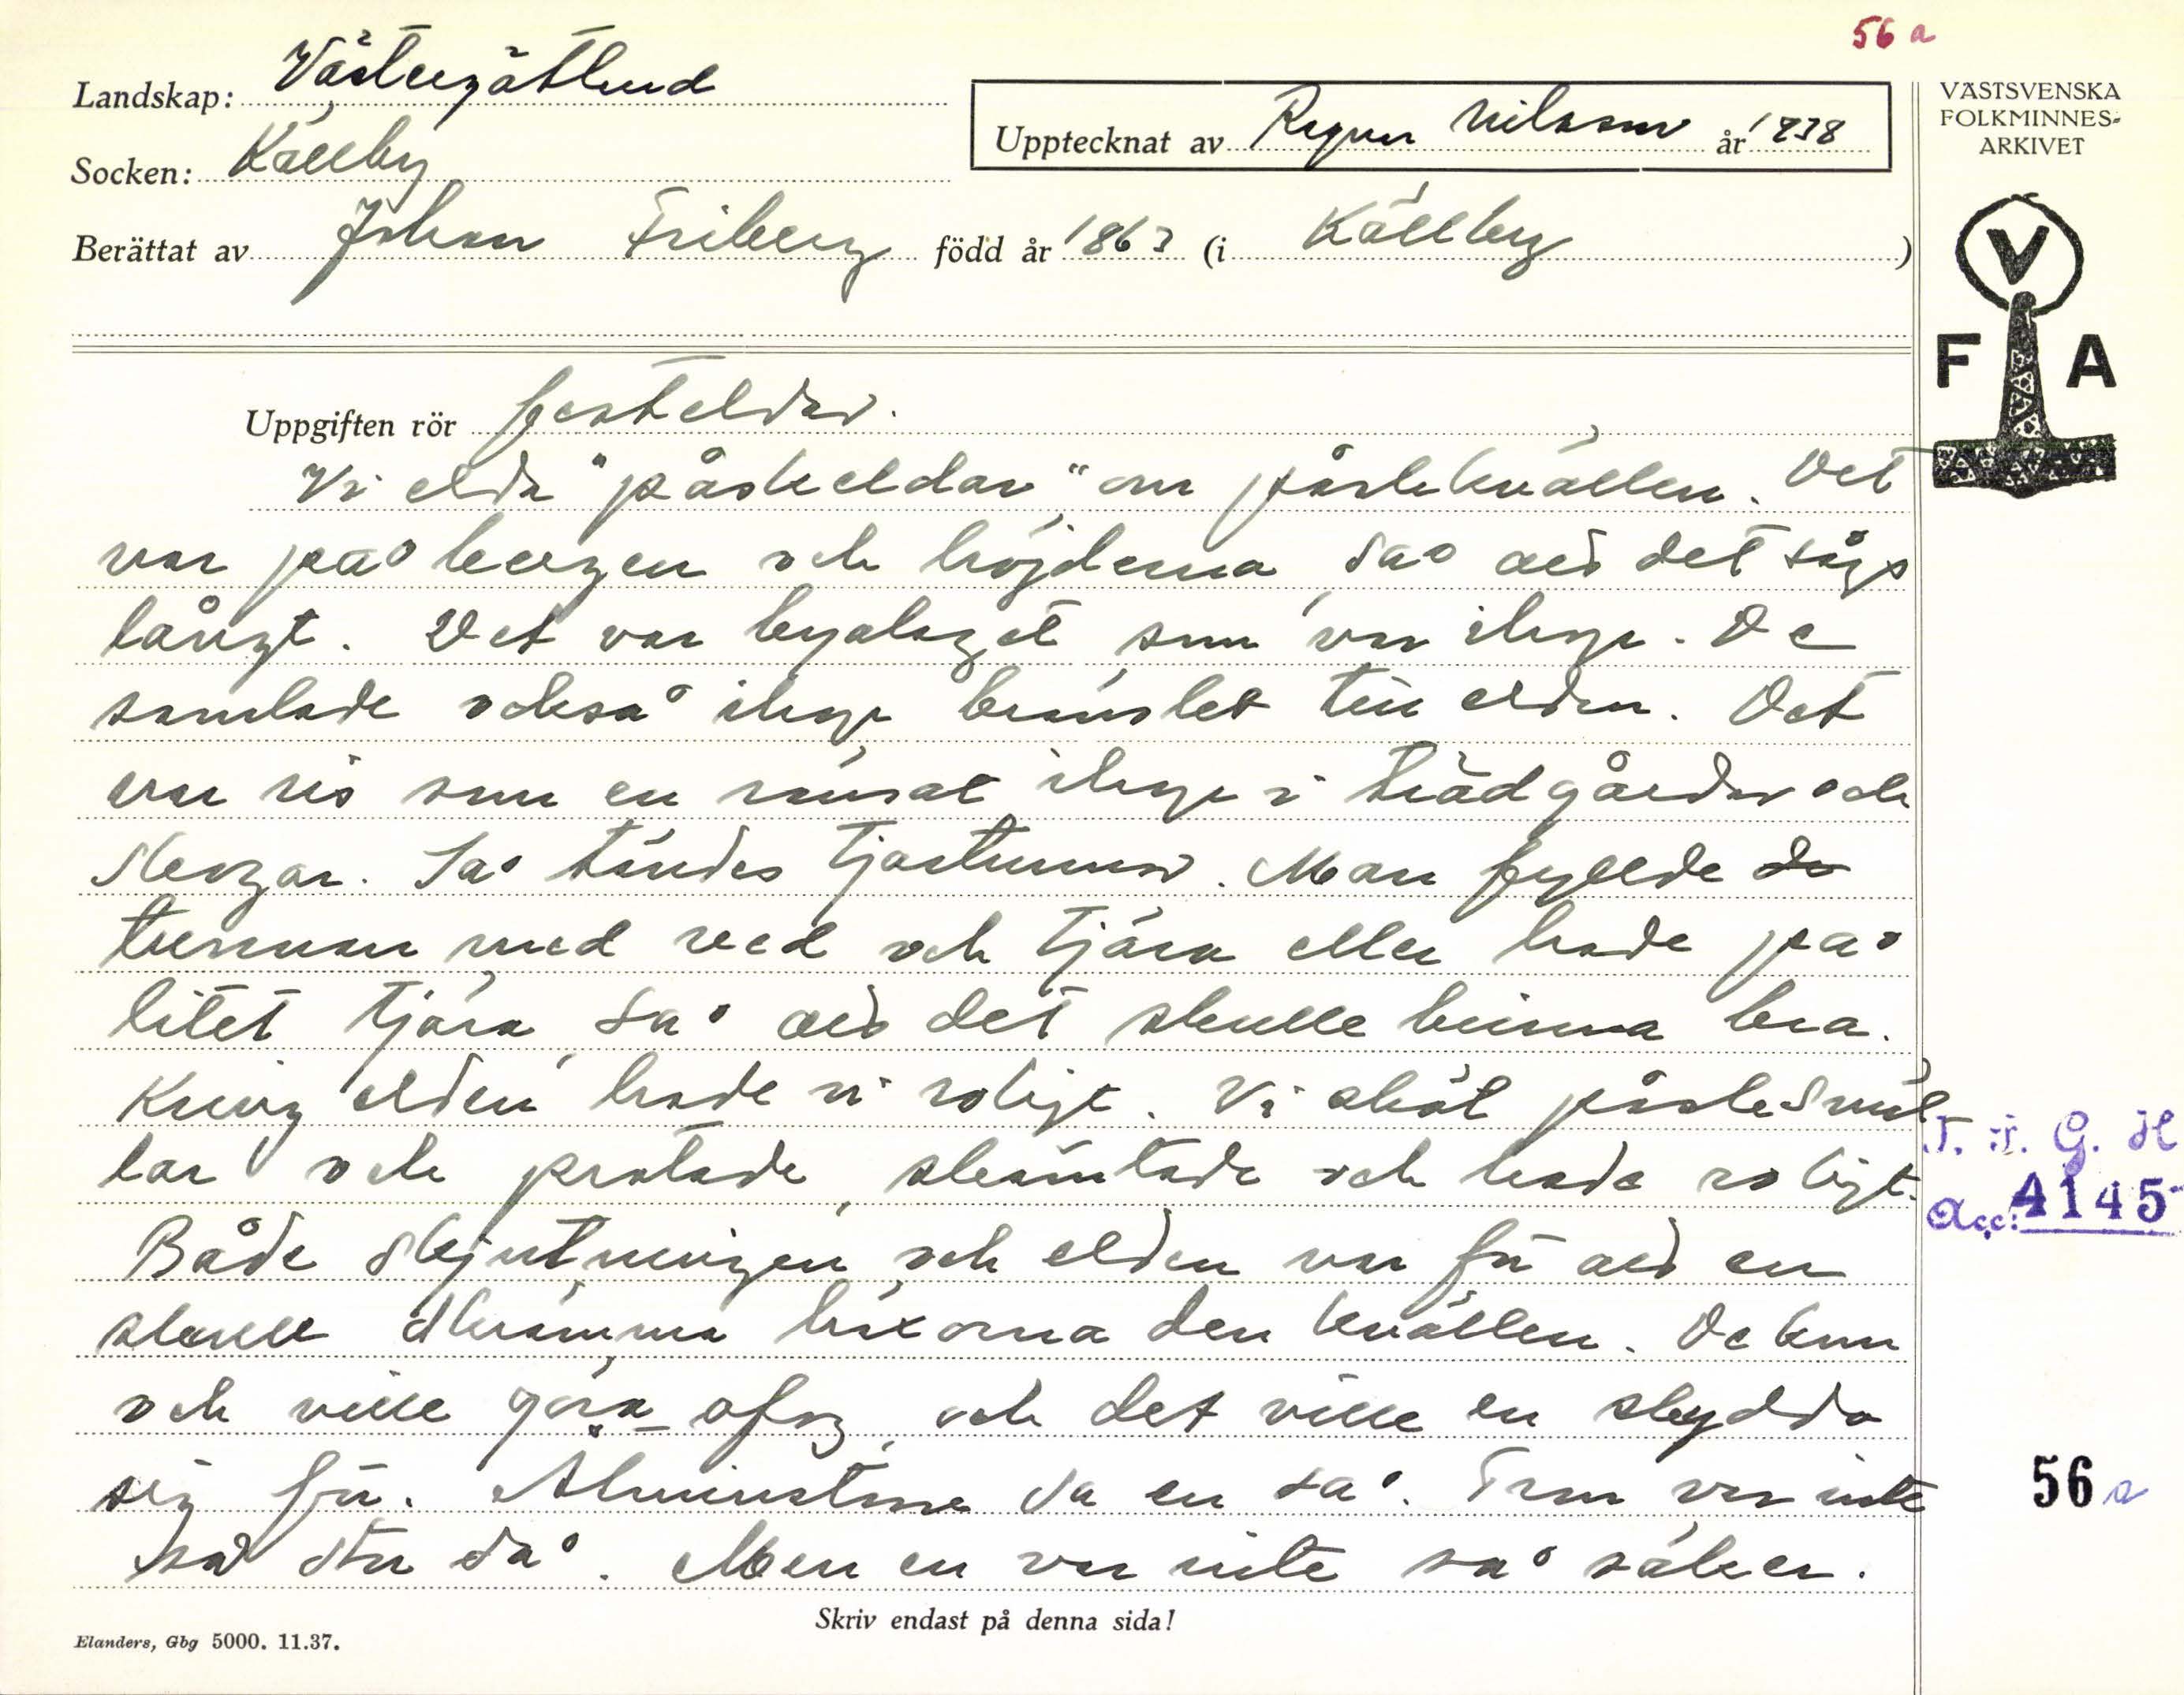 56 a
Landskap: Västergötland
Upptecknat av Ragnar Nilsson år 1938
VÄSTSVENSKA
FOLKMINNES-
ARKIVET
Socken: Källby
Berättat av Johan Friberg född år 1863 (i Källby )
V
F A
Uppgiften rör festeldar.
Vi elda "påskeldar" om påskkvällen. Det
var på bergen och höjderna, så att det sågs
långt. Det var byalaget som var ihop. De
samlade också ihop bränslet till elden. Det
var ris som en ränsat ihop i trädgårdar och
skogar. Så tändes tjärtunnor. Man fyllde do
tunnan med ved och tjära eller hade på
litet tjära, så att det skulle brinna bra.
Kring elden hade vi roligt. Vi sköt påsksmäl-
lar och pratade, skämtade och hade roligt.
Både skjutningen och elden var för att en
skulle skrämma häxorna den kvällen. De kom
och ville göra ofog, och det ville en skydda
sig för. Åtminstone sa en så. Tron var inte
så stor då. Men en var inte så säker.
G. H
Acc: 4145
56 a
Skriv endast på denna sida!
Elanders, Gbg 5000. 11.37.